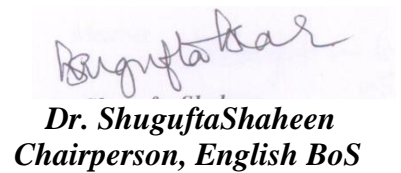 Dr. ShuguftaShaheen
Chairperson, English BoS